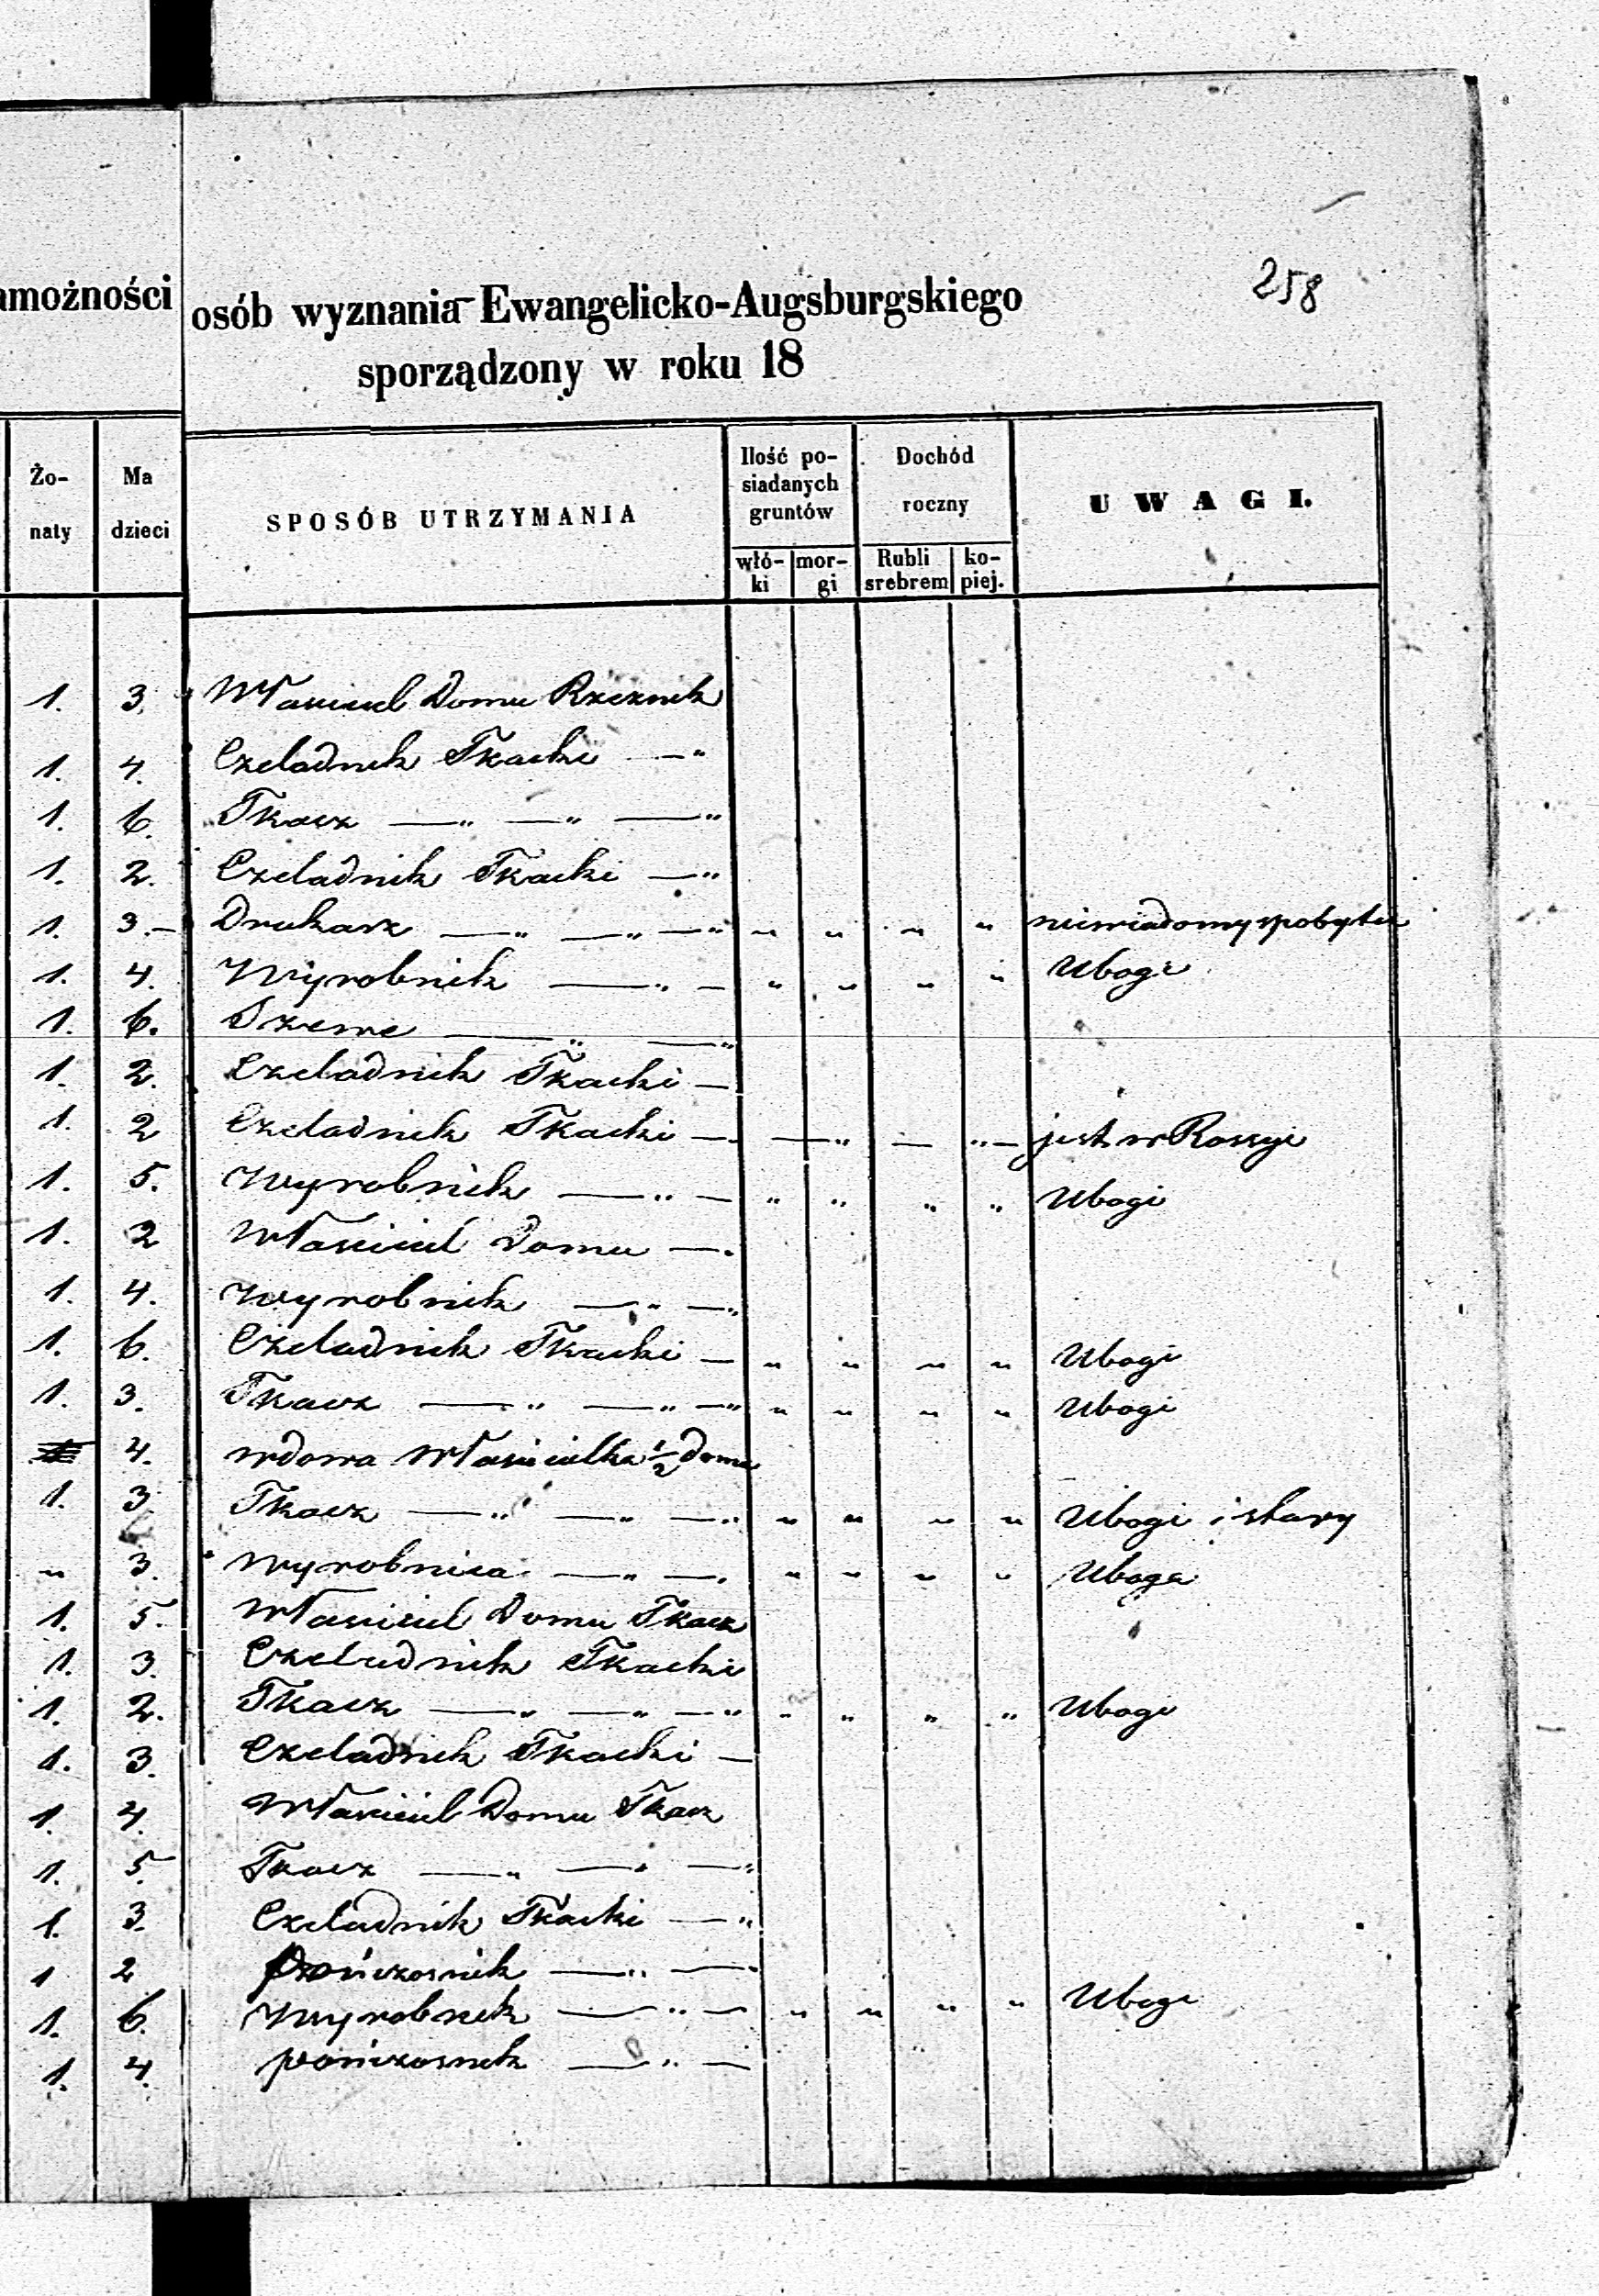 258
amożności osób wyznania Ewangelicko-Augsburgskiego
sporządzony w roku 18
Żo-
naty
Ma
dzieci
SPOSÓB UTRZYMANIA
Ilość po-
siadanych
gruntów
Dochód
roczny
UWAGI.
włó-
ki
mor-
gi
Rubli
srebrem
ko-
piej.
1. 3. Własiciel Domu Rzeznik
1. 4. Czeladnik Tkacki — "
1. 6. Tkacz — " — " — "
1. 2. Czeladnik Tkacki — "
1. 3. — Drukarz — " — " — " " " " " niewiadomy z pobytu
1. 4. Wyrobnik — " — " " " " Ubogi
1. 6. Szewc — " — "
1. 2. Czeladnik Tkacki —
1. 2 Czeladnik Tkacki — — " — " — jest w Rossyi
1. 5. Wyrobnik — " — " " " " Ubogi
1. 2 Własiciel Domu —
1. 4. Wyrobnik — " — "
1. 6. Czeladnik Tkacki — " " " " Ubogi
1. 3. Tkacz — " — " — " " " " " Ubogi
4. wdowa Własicielka ½ domu
1. 3. Tkacz — " — " — " " " " " Ubogi i stary
" 3. Wyrobnica — " — " " " " Uboga
1. 5. Własiciel Domu Tkacz
1. 3. Czeladnik Tkacki
1. 2. Tkacz — " — " — " " " " " Ubogi
1. 3. Czeladnik Tkacki —
1. 4. Własiciel Domu Tkacz
1. 5. Tkacz — " — " — "
1. 3. Czeladnik Tkacki — "
1 2 pończosnik — " — "
1. 6. Wyrobnik — " — " " " " Ubogi
1. 4. pończosnik — " —